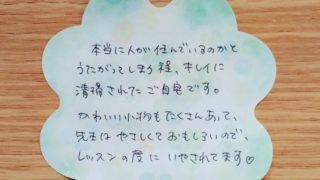 本当に人が住んでいるのかと
うたがってしまう程、キレイに
清掃されたご自宅です。
かわいい小物もたくさんあって、
先生はやさしくておもしろいので、
レッスンの度にいやされてます♡